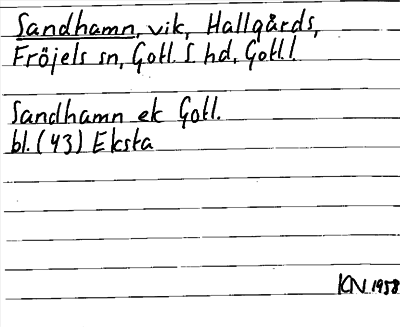 Sandhamn, vik, Hallgårds,
Fröjels sn, Gotl. S. hd, Gotl.l.
Sandhamn ek Gotl.
bl. (43) Eksta
KN 1958